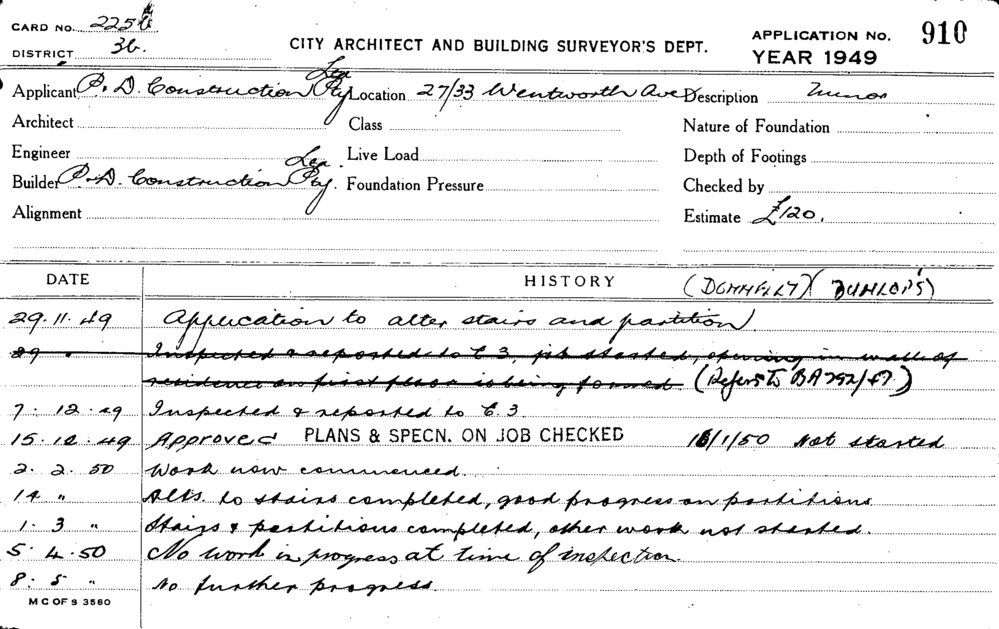 CARD NO. 2256
DISTRICT 36.
CITY ARCHITECT AND BUILDING SURVEYOR'S DEPT.
APPLICATION NO. 910
YEAR 1949
Applicant P. D. Construction Pty Location 27/33 Wentworth Ave Description Minor
Architect Class Nature of Foundation
Engineer Live Load Depth of Footings
Builder P. D. Construction Pty. Foundation Pressure Checked by
Alignment Estimate £120.
DATE HISTORY (DUNLOP'S)
29.11.49 Application to alter stairs and partition
29 " Inspected & reported to C3, job started, opening in wall of
residence on first floor is being formed (Refers to BA 792/47)
7.12.49 Inspected & reported to C.3.
15.12.49 Approved PLANS & SPECN. ON JOB CHECKED 16/1/50 Not started
2.2.50 Work now commenced.
14 " Alts. to stairs completed, good progress on partitions.
1.3 " Stairs & partitions completed, other work not started.
5.4.50 No work in progress at time of inspection.
8.5 " No further progress.
M C OF S 3580